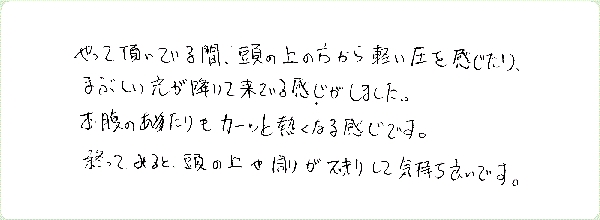 やって頂いている間、頭の上の方から軽い圧を感じたり、
まぶしい光が降りて来ている感じがしました。
お腹のあたりもカーッと熱くなる感じです。
終ってみると、頭の上や周りがスッキリして気持ち良いです。